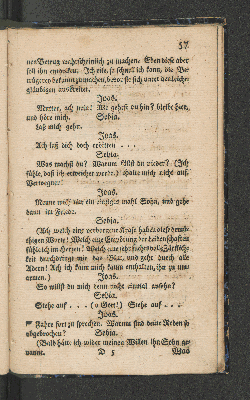 57
nen Betrug wahrscheinlich zu machen. Eben diese aber
soll ihn entdecken. Ich eile, so schnell ich kann, die Be-
trügerey bekannt zu machen, bevor sie sich unter den leicht-
gläubigen ausbreitet.
Joas.
Mutter, ach nein! Wo gehest du hin? bleibe hier,
und höre mich.
Sebia.
Laß mich gehn.
Joas.
Ach laß dich doch erbitten . . .
Sebia.
Was machst du? Warum fällst du nieder? (Ich
fühle, daß ich erweichet werde.) Halte mich nicht auf,
Verwegner!
Joas.
Nenne mich nur ein einziges mahl Sohn, und gehe
dann im Friede.
Sebia.
(Ach welch eine verborgene Kraft haben diese demü-
thigen Worte! Welch eine Empörung der Leidenschaften
fühl ich im Herzen! Welch eine schmerzenvolle Zärtlich-
keit durchdringt mir das Blut, und geht durch alle
Adern! Ach ich kann mich kaum enthalten, ihn zu um-
armen.)
Joas.
So willst du mich denn nicht einmal ansehn?
Sebia.
Stehe auf . . . (o Gott!) Stehe auf . . .
Joas.
Fahre fort zu sprechen. Warum sind deine Reden so
abgebrochen?
Sebia.
(Bald hätt ich wider meinen Willen ihn Sohn ge-
nannt.
D 5
Was